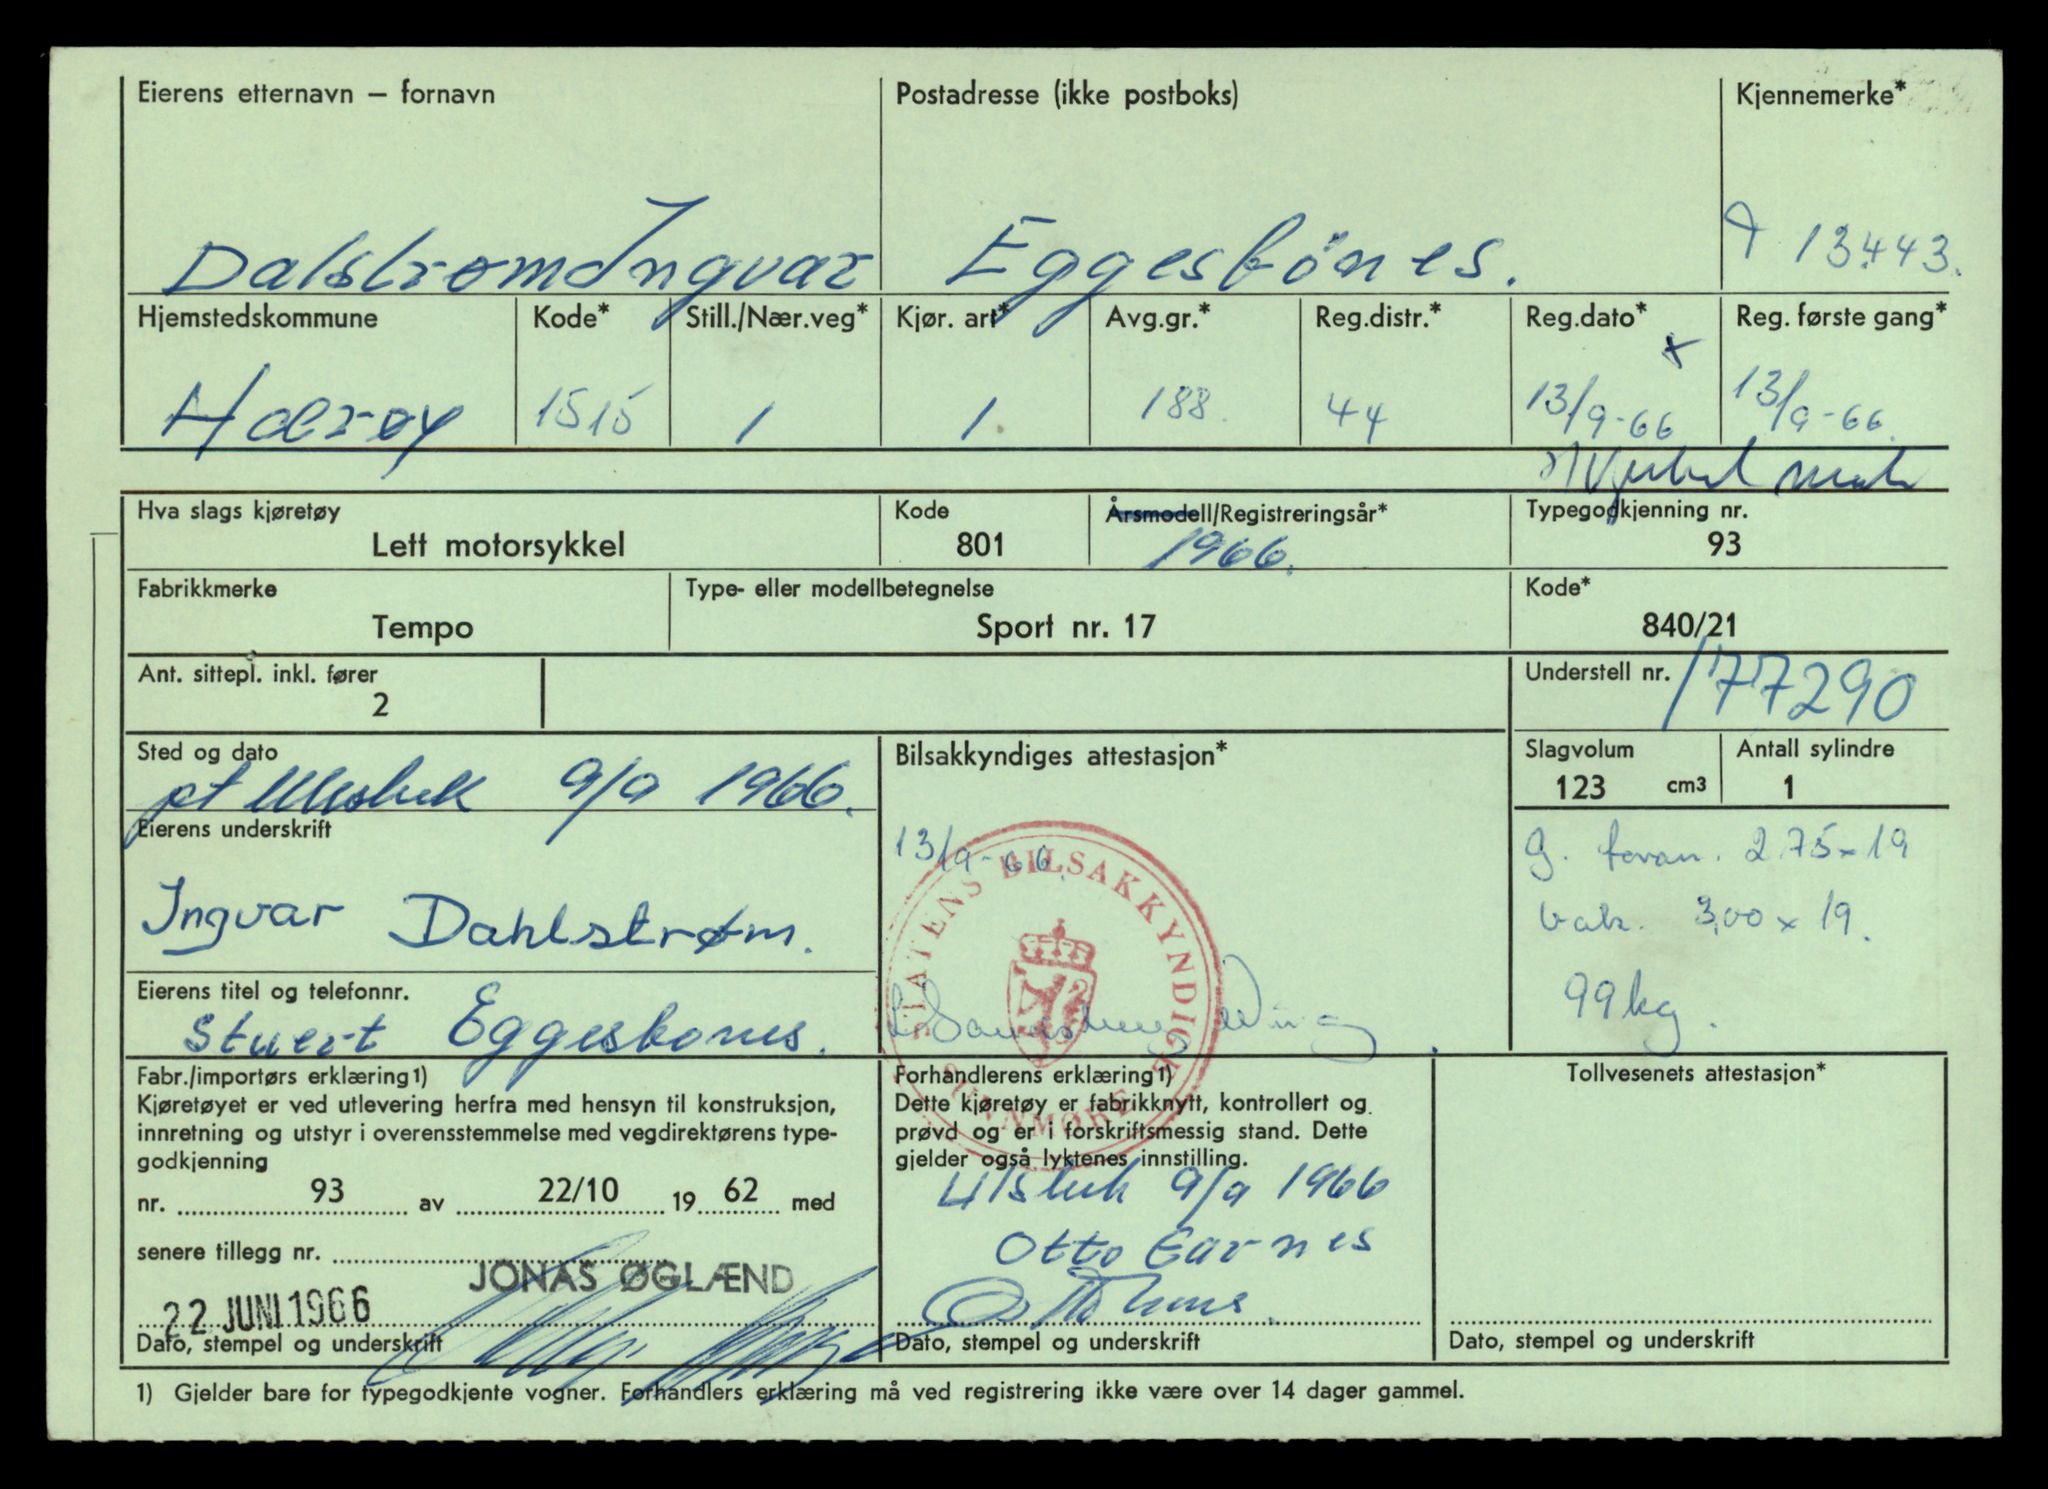 Eierens etternavn – fornavn
Postadresse (ikke postboks)
Kjennemerke*
Dalstrom Ingvar
Eggesbönes.
13443.
Hjemstedskommune
Kode*
Still./Nær.veg*
Kjør. art*
Avg.gr.*
Reg.distr.*
Reg.dato*
Reg. første gang*
x
Hærøy
1515
1
1.
188.
44
13/9-66
13/9-66.
Hva slags kjøretøy
Kode
Årsmodell/Registreringsår*
Typegodkjenning nr.
Lett motorsykkel
801
1966.
93
Fabrikkmerke
Type- eller modellbetegnelse
Kode*
Tempo
Sport nr. 17
840/21
Ant. sittepl. inkl. fører
2
Understell nr.
177290
Sted og dato
pt Ulsteik 9/9 1966.
Bilsakkyndiges attestasjon*
Slagvolum
Antall sylindre
123 cm3
1
Eierens underskrift
Ingvar Dahlstrøm.
13/9-66.
STATENS BILSAKKYNDIGE
SUNNMØRE
g. foran. 2.75x19
bak. 3,00x19.
99kg.
Eierens titel og telefonnr.
Stuert Eggesbones.
Fabr./importørs erklæring1)
Kjøretøyet er ved utlevering herfra med hensyn til konstruksjon,
innretning og utstyr i overensstemmelse med vegdirektørens type-
godkjenning
nr. 93 av 22/10 19 62 med
senere tillegg nr.
JONAS ØGLÆND
22 JUNI 1966
Dato, stempel og underskrift
Forhandlerens erklæring1)
Dette kjøretøy er fabrikknytt, kontrollert og
prøvd og er i forskriftsmessig stand. Dette
gjelder også lyktenes innstilling.
9/9 1966
Otto Garnes
Dato, stempel og underskrift
Tollvesenets attestasjon*
Dato, stempel og underskrift
1) Gjelder bare for typegodkjente vogner. Forhandlers erklæring må ved registrering ikke være over 14 dager gammel.